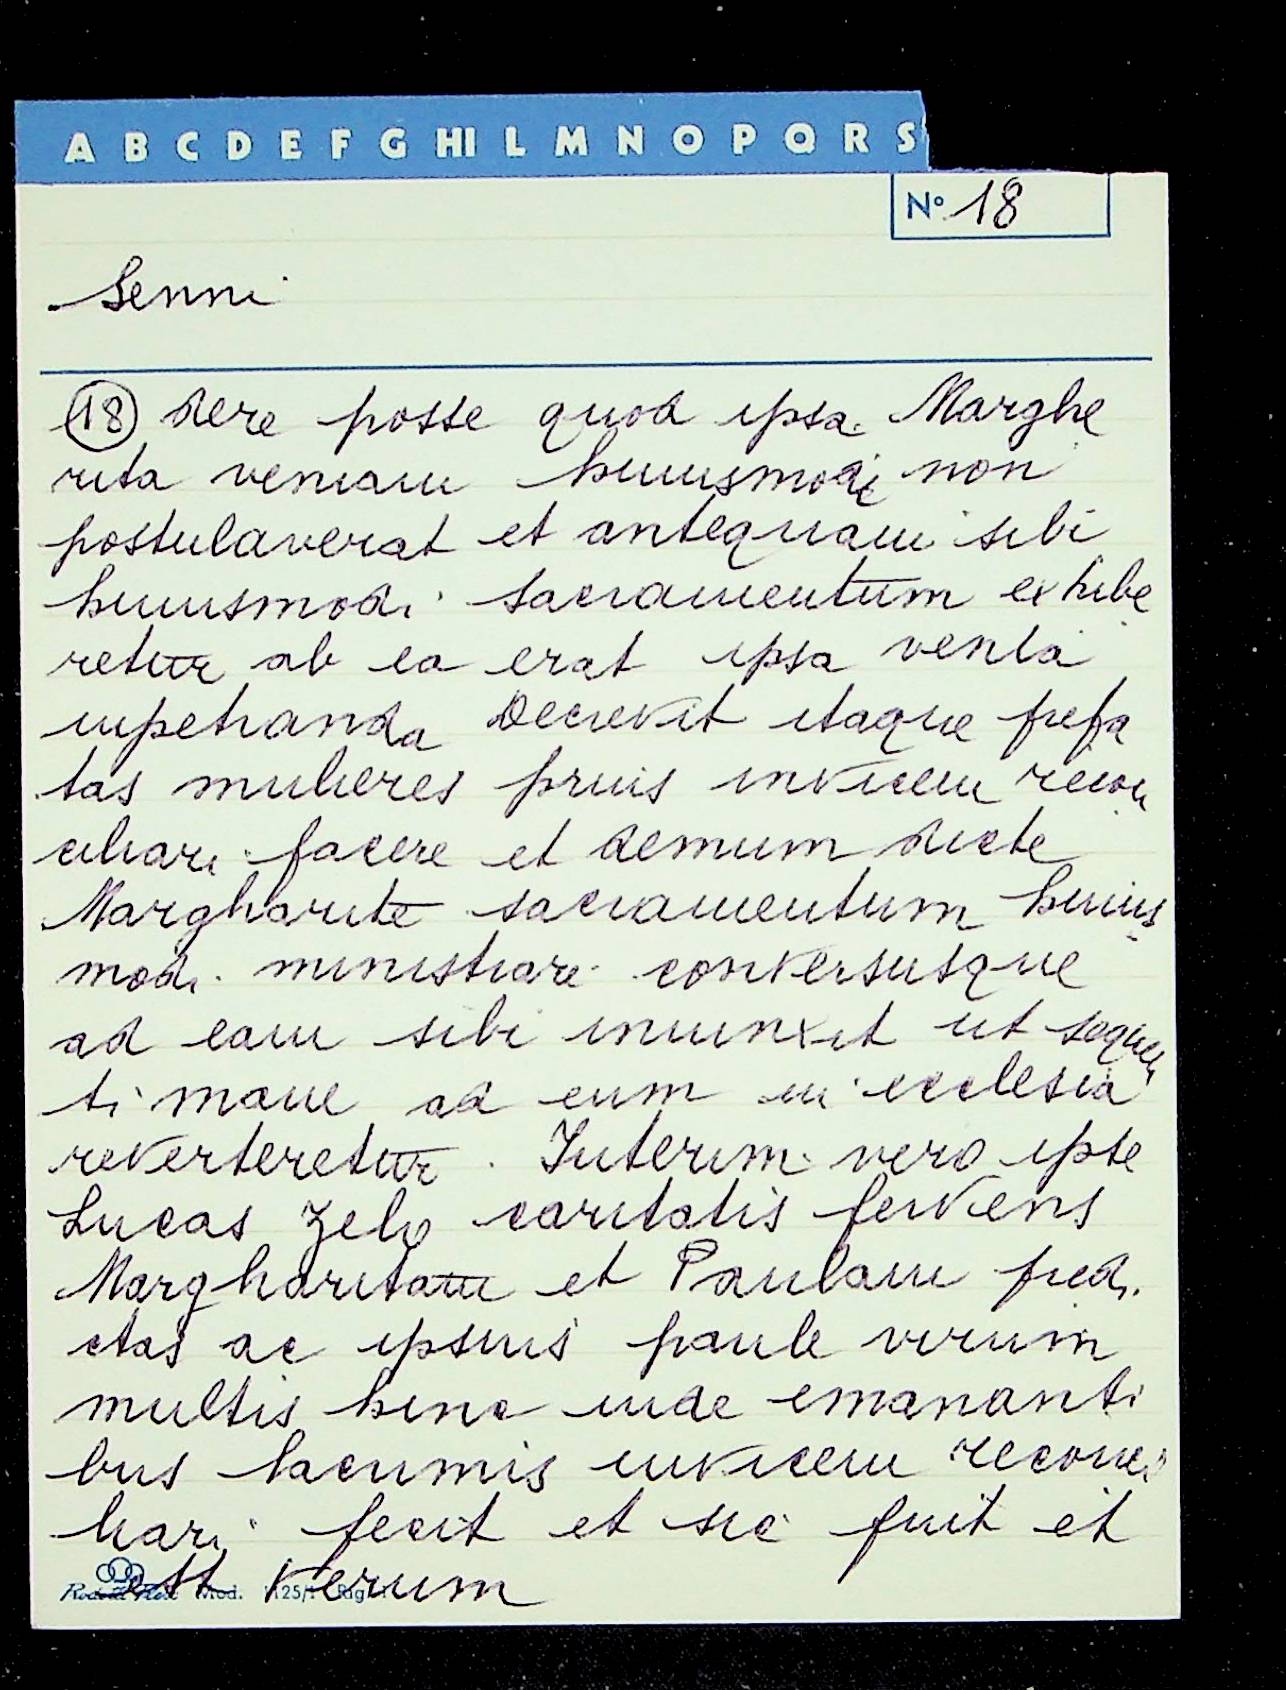 A B C D E F G HI L M N O P Q R S
N° 18
Senni
18 dere posse quod ipsa Marghe
rita veniam huiusmodi non
postulaverat et antequam sibi
huiusmodi sacramentum exhibe
retur ab ea erat ipsa venia
impetranda Decrevit itaque prefa
tas mulieres prius invicem recon
ciliari facere et demum dicte
Margharite sacramentum huius
modi ministrare conversusque
ad eam sibi iniunxit ut sequen
ti mane ad eum in ecclesia
reverteretur. Interim vero ipse
Lucas zelo caritatis fervens
Margharitam et Paulam predi
ctas ac ipsius paule virum
multis hinc inde emananti
bus lacrimis invicem reconci
liari fecit et sic fuit et
est verum
Mod.